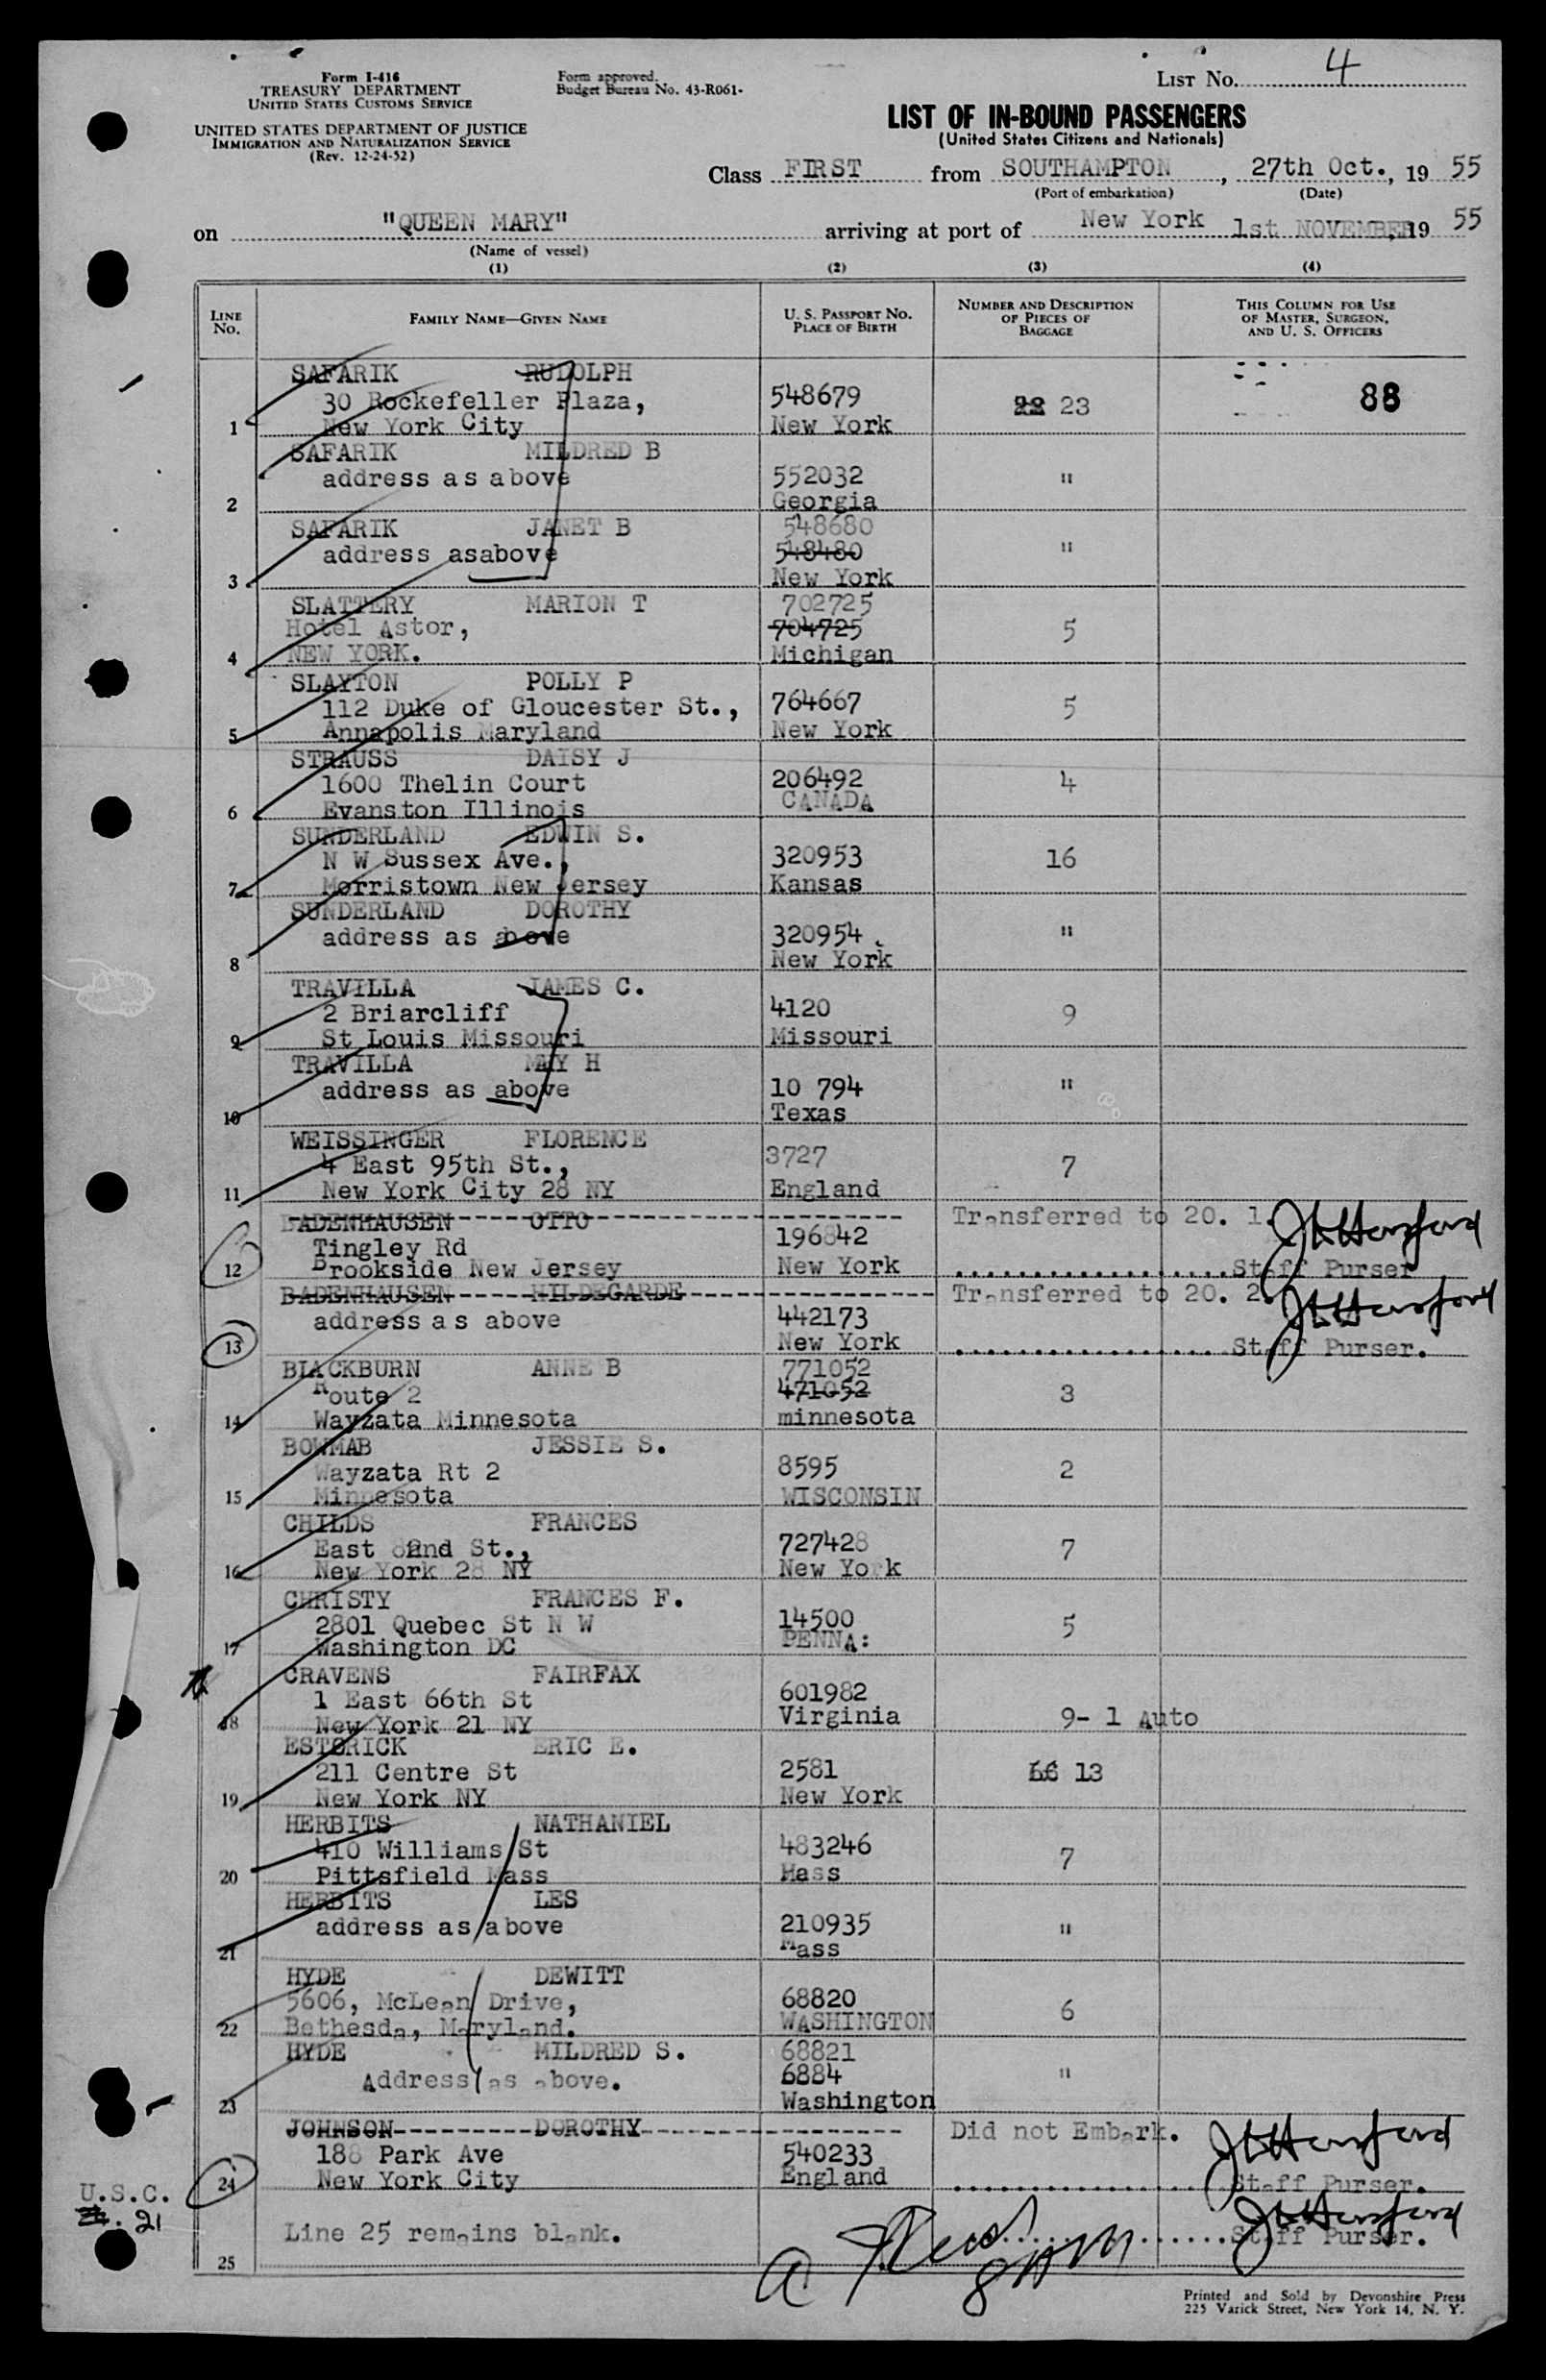 Form I-416
TREASURY DEPARTMENT
UNITED STATES CUSTOMS SERVICE
UNITED STATES DEPARTMENT OF JUSTICE
IMMIGRATION AND NATURALIZATION SERVICE
(Rev. 12-24-52)
Form approved.
Budget Bureau No. 43-R061-
LIST No. 4
LIST OF IN-BOUND PASSENGERS
(United States Citizens and Nationals)
Class FIRST from SOUTHAMPTON, 27th Oct., 19 55
(Port of embarkation) (Date)
on "QUEEN MARY" arriving at port of New York 1st NOVEMBER, 19 55
(Name of vessel)
(1) (2) (3) (4)
LINE No. FAMILY NAME—GIVEN NAME U. S. PASSPORT NO. PLACE OF BIRTH NUMBER AND DESCRIPTION OF PIECES OF BAGGAGE THIS COLUMN FOR USE OF MASTER, SURGEON, AND U. S. OFFICERS
SAFARIK RUDOLPH
30 Rockefeller Plaza, 548679 22 23 88
1 New York City New York
SAFARIK MILDRED B
address as above 552032 "
2 Georgia
SAFARIK JANET B 548680
address asabove 548480 "
3 New York
SLATTERY MARION T 702725
Hotel Astor, 704725 5
4 NEW YORK. Michigan
SLAYTON POLLY P
112 Duke of Gloucester St., 764667 5
5 Annapolis Maryland New York
STRAUSS DAISY J
1600 Thelin Court 206492 4
6 Evanston Illinois CANADA
SUNDERLAND EDWIN S.
N W Sussex Ave., 320953 16
7 Morristown New Jersey Kansas
SUNDERLAND DOROTHY
address as above 320954 "
8 New York
TRAVILLA JAMES C.
2 Briarcliff 4120 9
9 St Louis Missouri Missouri
TRAVILLA MAY H
address as above 10 794 "
10 Texas
WEISSINGER FLORENCE
4 East 95th St., 3727 7
11 New York City 28 NY England
BADENHAUSEN OTTO Transferred to 20. 1.
Tingley Rd 196842
12 Brookside New Jersey New York Staff Purser
BADENHAUSEN HILDEGARDE Transferred to 20. 2.
address as above 442173
13 New York Staff Purser.
BLACKBURN ANNE B 771052
Route 2 471052 3
14 Wayzata Minnesota minnesota
BOWMAB JESSIE S.
Wayzata Rt 2 8595 2
15 Minnesota WISCONSIN
CHILDS FRANCES
East 82nd St., 727428 7
16 New York 28 NY New York
CHRISTY FRANCES F.
2801 Quebec St N W 14500 5
17 Washington DC PENNA:
CRAVENS FAIRFAX
1 East 66th St 601982
18 New York 21 NY Virginia 9- 1 Auto
ESTORICK ERIC E.
211 Centre St 2581 13
19 New York NY New York
HERBITS NATHANIEL
410 Williams St 483246 7
20 Pittsfield Mass Mass
HERBITS LES
address as above 210935 "
21 Mass
HYDE DEWITT
5606, McLean Drive, 68820 6
22 Bethesda, Maryland. WASHINGTON
HYDE MILDRED S. 68821
Address as above. 6884 "
23 Washington
JOHNSON DOROTHY Did not Embark.
188 Park Ave 540233
24 New York City England Staff Purser.
U.S.C.
21
Line 25 remains blank. Staff Purser.
25
Printed and Sold by Devonshire Press
225 Varick Street, New York 14, N. Y.